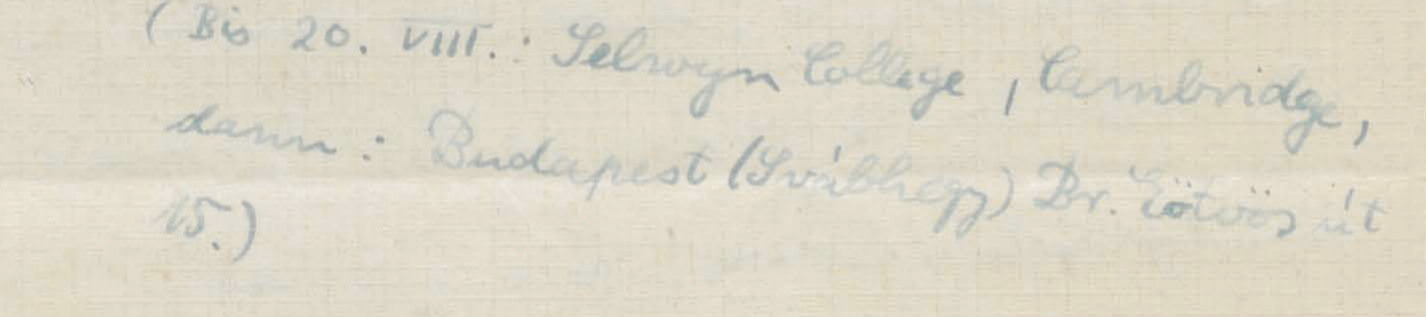 (Bis 20. VIII.: Selwyn College, Cambridge,
dann: Budapest (Svábhegy) Br. Eötvös út
15.)